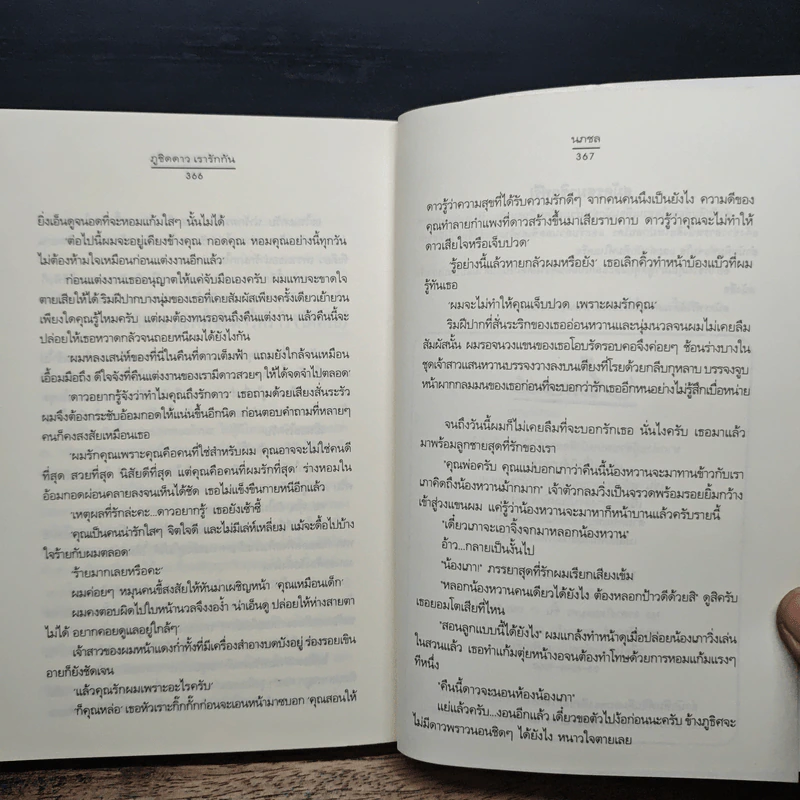 ภูชิตดาว เรารักกัน
366
ยิ่งเอ็นดูจนอดที่จะหอมแก้มใสๆ นั้นไม่ได้
'ต่อไปนี้ผมจะอยู่เคียงข้างคุณ กอดคุณ หอมคุณอย่างนี้ทุกวัน
ไม่ต้องห้ามใจเหมือนก่อนแต่งงานอีกแล้ว'
ก่อนแต่งงานเธออนุญาตให้แค่จับมือเองครับ ผมแทบจะขาดใจ
ตายเสียให้ได้ ริมฝีปากบางนุ่มของเธอที่เคยสัมผัสเพียงครั้งเดียวเย้ายวน
เพียงใดคุณรู้ไหมครับ แต่ผมต้องทนรอจนถึงคืนแต่งงาน แล้วคืนนี้จะ
ปล่อยให้เธอหวาดกลัวจนถอยหนีผมได้ยังไงกัน
'ผมหลงเสน่ห์ของที่นี่ในคืนที่ดาวเต็มฟ้า แถมยังใกล้จนเหมือน
เอื้อมมือถึง ดีใจจังที่คืนแต่งงานของเรามีดาวสวยๆ ให้ได้จดจำไปตลอด'
'ดาวอยากรู้จังว่าทำไมคุณถึงรักดาว' เธอถามด้วยเสียงสั่นระรัว
ผมจึงต้องกระชับอ้อมกอดให้แน่นขึ้นอีกนิด ก่อนตอบคำถามที่หลายๆ
คนก็คงสงสัยเหมือนเธอ
'ผมรักคุณเพราะคุณคือคนที่ใช่สำหรับผม คุณอาจจะไม่ใช่คนดี
ที่สุด สวยที่สุด นิสัยดีที่สุด แต่คุณคือคนที่ผมรักที่สุด' ร่างหอมใน
อ้อมกอดผ่อนคลายลงจนเห็นได้ชัด เธอไม่แข็งขืนกายหนีอีกแล้ว
'เหตุผลที่รักล่ะคะ...ดาวอยากรู้' เธอยังเซ้าซี้
'คุณเป็นคนน่ารักใสๆ จิตใจดี และไม่มีเล่ห์เหลี่ยม แม้จะดื้อไปบ้าง
ใจร้ายกับผมตลอด'
'ร้ายมากเลยหรือคะ'
ผมค่อยๆ หมุนคนขี้สงสัยให้หันมาเผชิญหน้า 'คุณเหมือนเด็ก'
ผมคงตอบผิดไปใบหน้านวลจึงงอง้ำ 'น่าเอ็นดู ปล่อยให้ห่างสายตา
ไม่ได้ อยากคอยดูแลอยู่ใกล้ๆ'
เจ้าสาวของผมหน้าแดงก่ำทั้งที่มีเครื่องสำอางบดบังอยู่ ร่องรอยเขิน
อายก็ยังชัดเจน
'แล้วคุณรักผมเพราะอะไรครับ'
'ก็คุณหล่อ' เธอหัวเราะกิ๊กกั๊กก่อนจะเอนหน้ามาซบอก 'คุณสอนให้
นภชล
367
ดาวรู้ว่าความสุขที่ได้รับความรักดีๆ จากคนคนนึงเป็นยังไง ความดีของ
คุณทำลายกำแพงที่ดาวสร้างขึ้นมาเสียราบคาบ ดาวรู้ว่าคุณจะไม่ทำให้
ดาวเสียใจหรือเจ็บปวด'
'รู้อย่างนี้แล้วหายกลัวผมหรือยัง' เธอเลิกคิ้วทำหน้าบ้องแบ๊วที่ผม
รู้ทันเธอ
'ผมจะไม่ทำให้คุณเจ็บปวด เพราะผมรักคุณ'
ริมฝีปากที่สั่นระริกของเธออ่อนหวานและนุ่มนวลจนผมไม่เคยลืม
สัมผัสนั้น ผมรอจนวงแขนของเธอโอบรัดรอบคอจึงค่อยๆ ช้อนร่างบางใน
ชุดเจ้าสาวแสนหวานบรรจงวางลงบนเตียงที่โรยด้วยกลีบกุหลาบ บรรจงจูบ
หน้าผากกลมมนของเธอก่อนที่จะบอกว่ารักเธออีกหนอย่างไม่รู้สึกเบื่อหน่าย
จนถึงวันนี้ผมก็ไม่เคยลืมที่จะบอกรักเธอ นั่นไงครับ เธอมาแล้ว
มาพร้อมลูกชายสุดที่รักของเรา
"คุณพ่อครับ คุณแม่บอกเภาว่าคืนนี้น้องหวานจะมาทานข้าวกับเรา
เภาคิดถึงน้องหวานม้ากมาก" เจ้าตัวกลมวิ่งเป็นจรวดพร้อมรอยยิ้มกว้าง
เข้าสู่วงแขนผม แค่รู้ว่าน้องหวานจะมาก็หน้าบานแล้วครับรายนี้
"เดี๋ยวเภาจะเอาจิ้งจกมาหลอกน้องหวาน"
อ้าว...กลายเป็นงั้นไป
"น้องเภา!" ภรรยาสุดที่รักผมเรียกเสียงเข้ม
"หลอกน้องหวานคนเดียวได้ยังไง ต้องหลอกป้าวดีด้วยสิ" ดูสิครับ
เธอยอมโตเสียที่ไหน
"สอนลูกแบบนี้ได้ยังไง" ผมแกล้งทำหน้าดุเมื่อปล่อยน้องเภาวิ่งเล่น
ในสวนแล้ว เธอทำแก้มตุ่ยหน้างอจนต้องทำโทษด้วยการหอมแก้มแรงๆ
ทีหนึ่ง
"คืนนี้ดาวจะนอนห้องน้องเภา"
แย่แล้วครับ...งอนอีกแล้ว เดี๋ยวขอตัวไปง้อก่อนนะครับ ข้างภูชิตจะ
ไม่มีดาวพราวนอนชิดๆ ได้ยังไง หนาวใจตายเลย